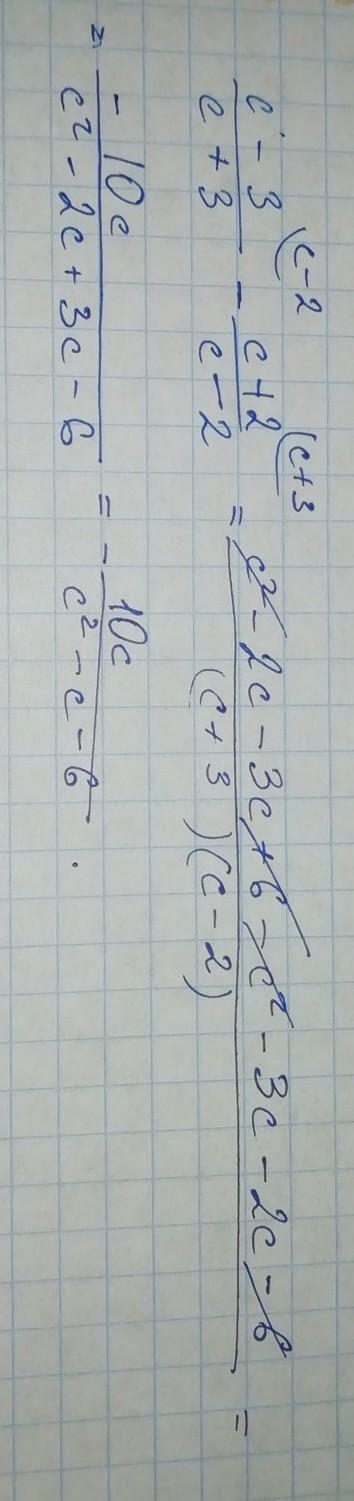 (c-3)/(c+3) ⁽ᶜ⁻² - (c+2)/(c-2) ⁽ᶜ⁺³ = (c² - 2c - 3c + 6 - c² - 3c - 2c - 6)/((c+3)(c-2)) =
= (-10c)/(c² - 2c + 3c - 6) = - (10c)/(c² - c - 6).